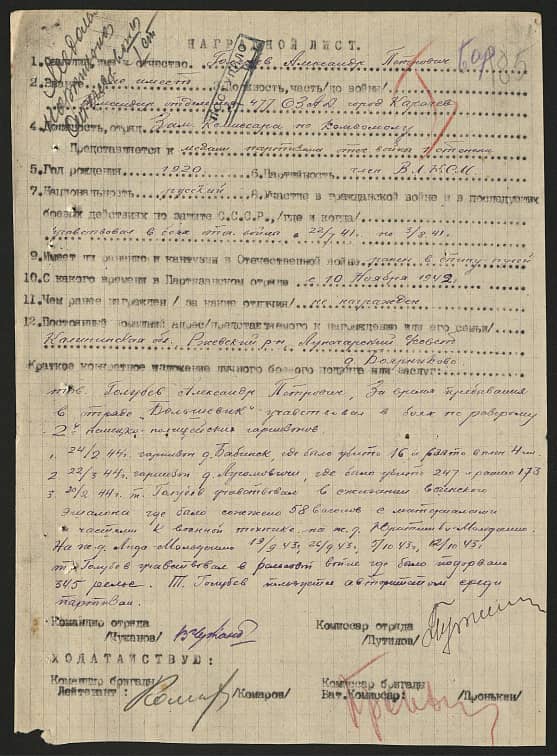 Медаль
НАГРАДНОЙ ЛИСТ.
85
1. Фамилия имя и отчество. Голубев Александр Петрович
2. Звание не имеет 3. Должность, часть /до войны/
командир отделения 477 ОЗАД город Карачев
4. Должность, отряд. Зам. Комиссара по комсомолу
Представляется к медали партизана отеч. война II степени
5. Год рождения 1920 6. Партийность член ВЛКСМ
7. Национальность русский 8. Участие в гражданской войне и в последующих
боевых действиях по защите С.С.С.Р., /где и когда/
участвовал в боях отеч. войны с 22/7 41. по 3/8 41.
9. Имеет ли ранения и контузии в Отечественной войне ранен в спину пулей
10. С какого времени в Партизанском отряде с 10 Ноября 1942г
11. Чем ранее награжден /за какие отличия/ не награжден
12. Постоянный домашний адрес/представляемого к награждению или его семьи/
Калининская обл. Ржевский р-н, Луначарский с/совет
д.
Краткое конкретное изложение личного боевого подвига или заслуг:
тов. Голубев Александр Петрович, За время пребывания
в отряде "Большевик" участвовал в боях по разгрому
2х немецко-полицейских гарнизонов.
1. 24/2 44г. гарнизон д. Бабинск, где было убито 16 и взято в плен 4 чел.
2 22/3 44 г гарнизон д. где было убито 247 и ранено 173
3 20/2 44г. т. Голубев участвовал в сжигании воинского
эшалона где было сожжено 58 вагонов с материалами
и частями к военной технике на ж.д. Молодечно.
На ж.д. Лида-Молодечно 19/9 43г, 25/9 43г, 5/10 43г, 12/10 43г
т. Голубев участвовал в рельсовой войне где было подорвано
345 рельс. Т. Голубев пользуется авторитетом среди
партизан.
Командир отряда
/Чужанов/
Комиссар отряда
/Путилов/
ХОДАТАЙСТВУЮ:
Командир бригады
Лейтенант: /Комаров/
Комиссар бригады
Бат. Комиссар: /Пронькин/